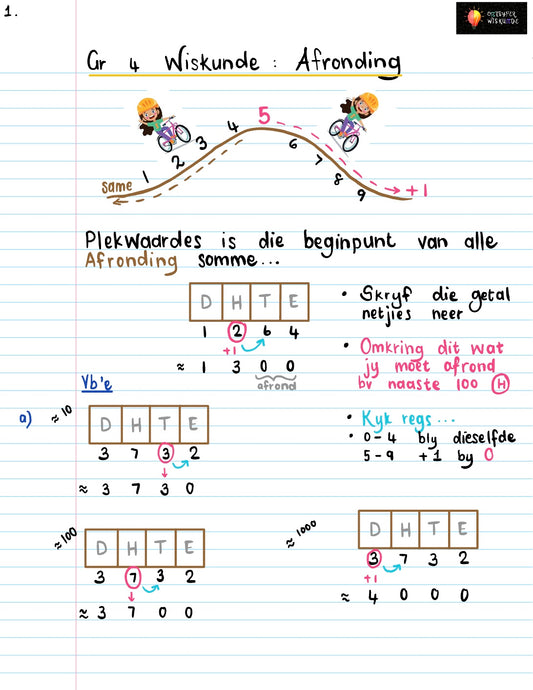 1.
OSTRYFER
WISKUNDE
Gr 4 Wiskunde : Afronding
same 1 2 3 4 5 6 7 8 9 +1
Plekwaardes is die beginpunt van alle
Afronding somme...
D H T E
1 2 6 4
+1
≈ 1 3 0 0
afrond
• Skryf die getal
netjies neer
• Omkring dit wat
jy moet afrond
bv naaste 100 H
• Kyk regs...
• 0-4 bly dieselfde
5-9 +1 by O
Vb'e
a) ≈10
D H T E
3 7 3 2
≈ 3 7 3 0
≈100
D H T E
3 7 3 2
≈ 3 7 0 0
≈1000
D H T E
3 7 3 2
+1
≈ 4 0 0 0